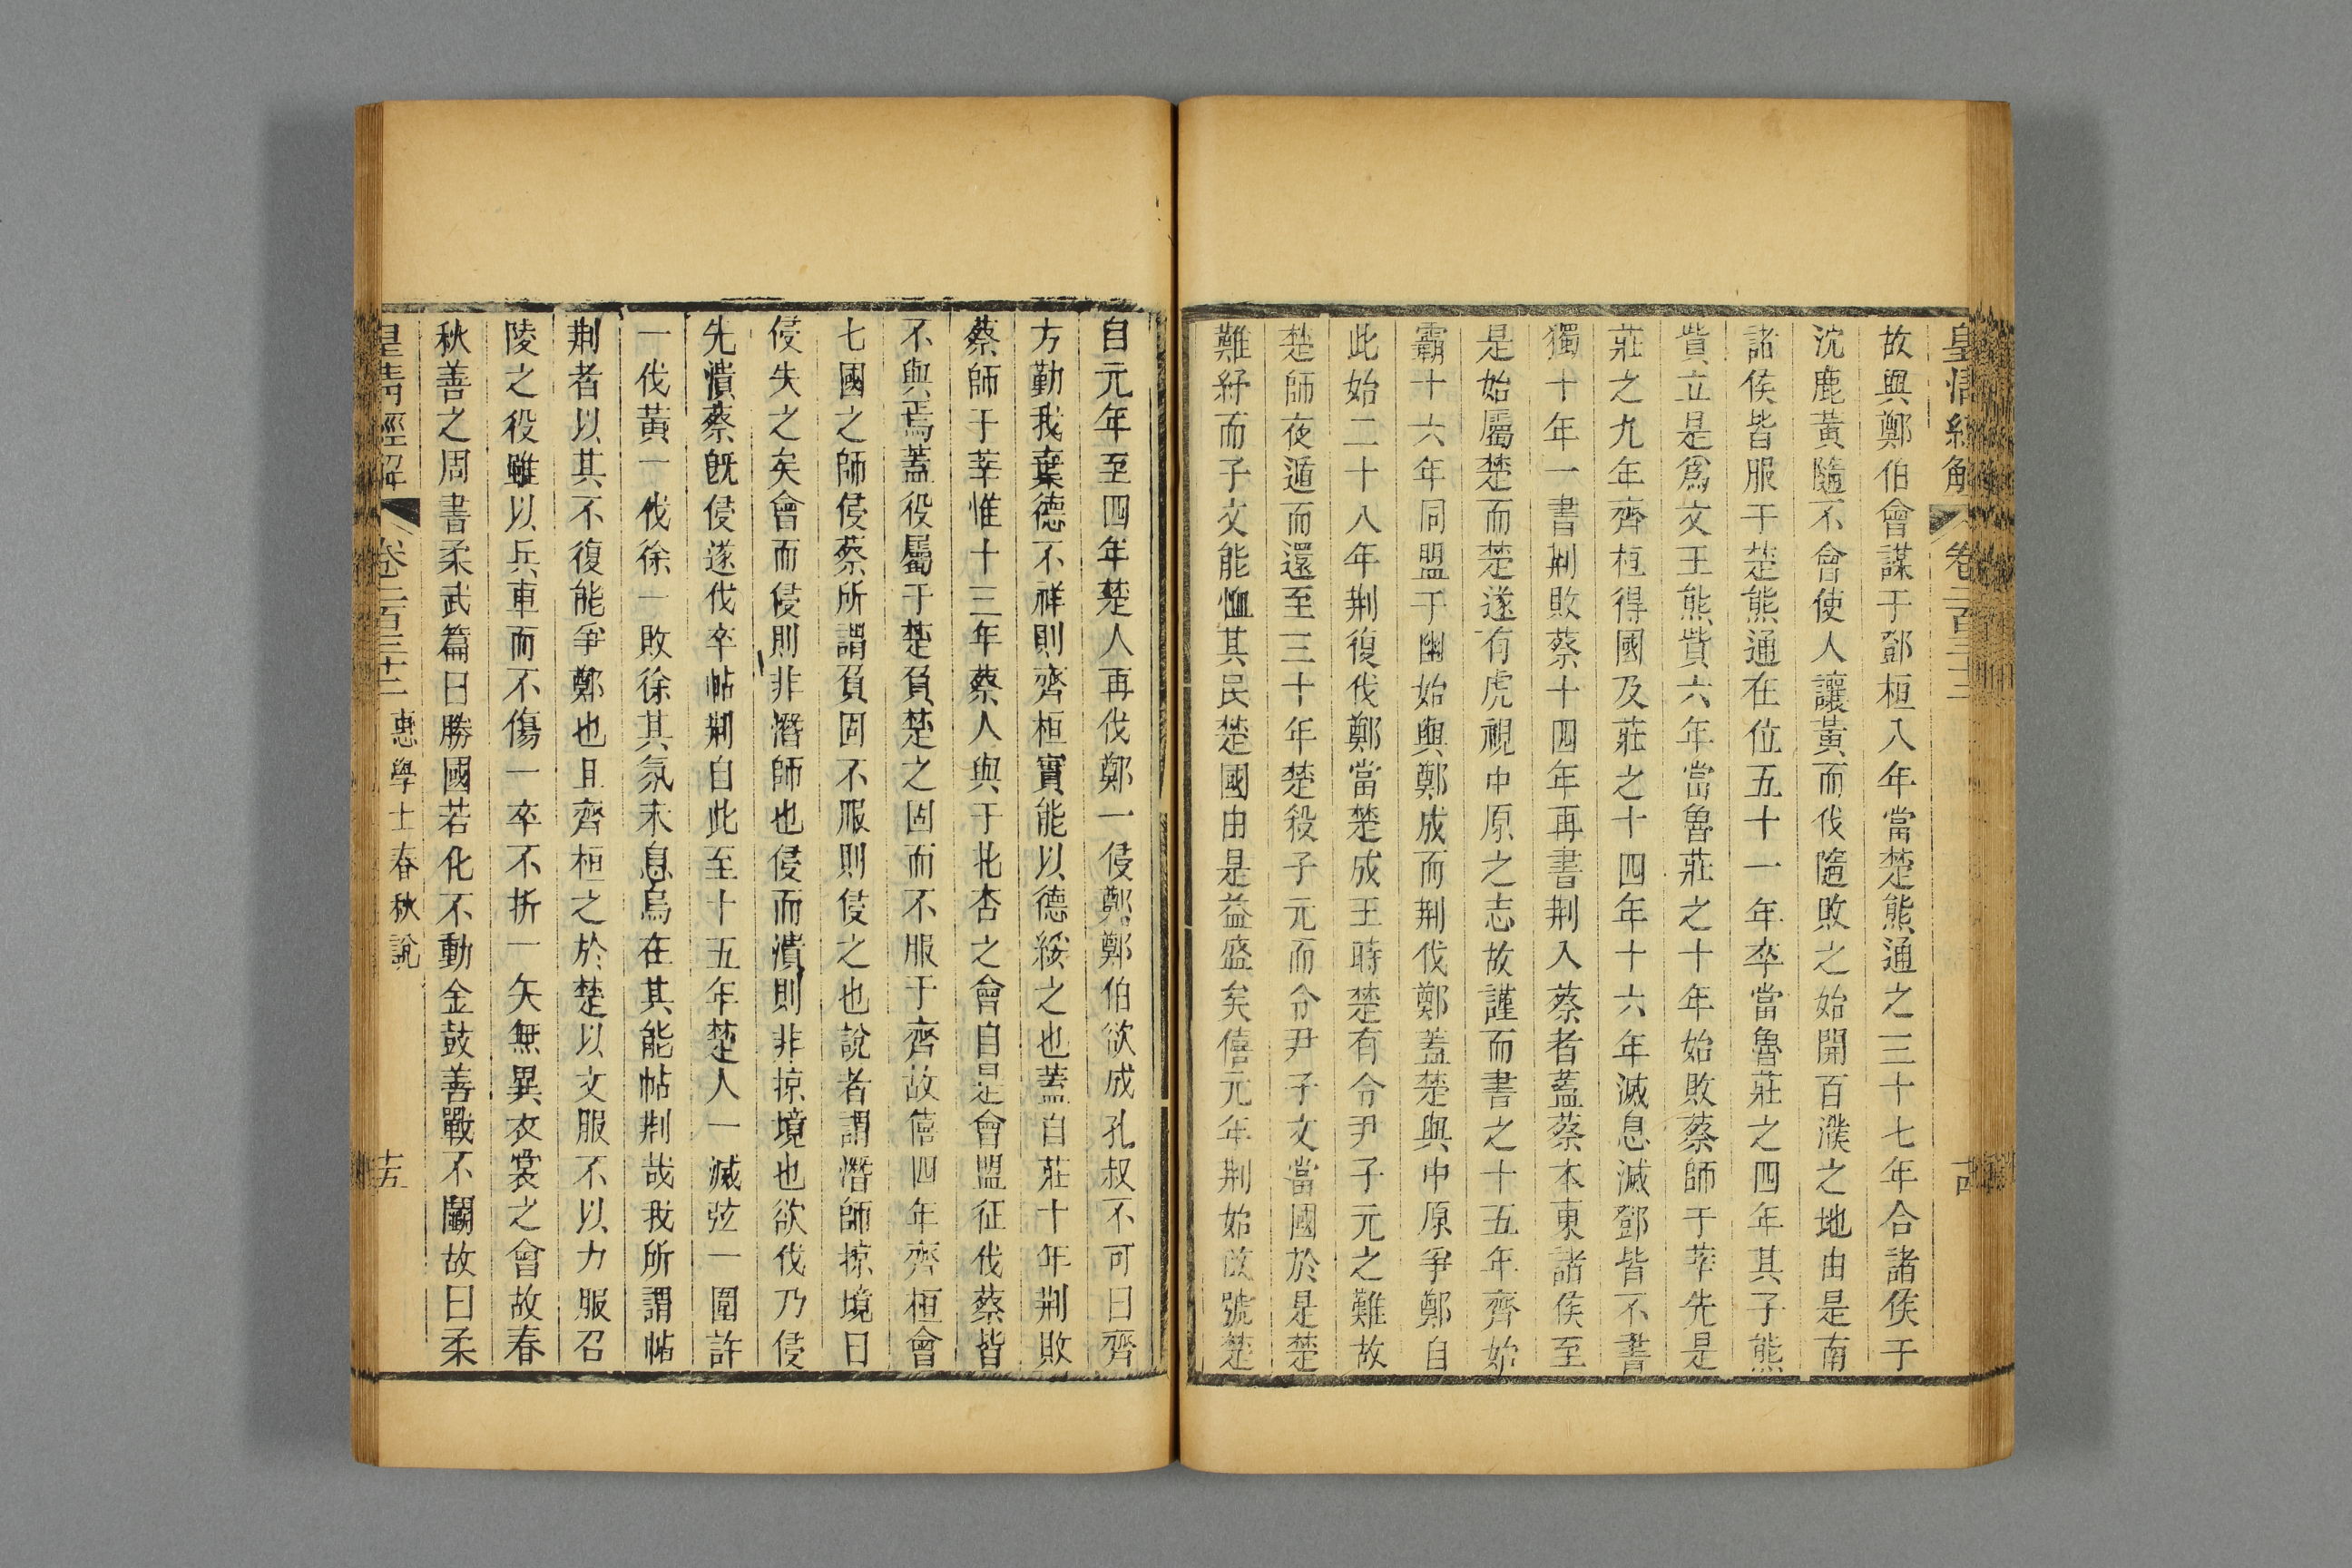 皇清經解 卷二百三十二 古
故與鄭伯會謀于鄧桓入年當楚熊通之三十七年合諸侯于
沈鹿黃隨不會使人讓黃而伐隨敗之始開百濮之地由是南
諸侯皆服于楚熊通在位五十一年卒當魯莊之四年其子熊
貲立是爲文王熊貲六年當魯莊之十年始敗蔡師于莘先是
莊之九年齊桓得國及莊之十四年十六年滅息滅鄧皆不書
獨十年一書荆敗蔡十四年再書荆入蔡者蓋蔡本東諸侯至
是始屬楚而楚遂有虎視中原之志故謹而書之十五年齊始
霸十六年同盟于幽始與鄭成而荆伐鄭蓋楚與中原爭鄭自
此始二十八年荆復伐鄭當楚成王時楚有令尹子元之難故
楚師夜遁而還至三十年楚殺子元而令尹子文當國於是楚
難紓而子文能恤其民楚國由是益盛矣僖元年荆始改號楚
自元年至四年楚人再伐鄭一侵鄭鄭伯欲成孔叔不可曰齊
方勤我棄德不祥則齊桓實能以德綏之也蓋自莊十年荆敗
蔡師于莘惟十三年蔡人與于北杏之會自是會盟征伐蔡皆
不與焉蓋役屬于楚負楚之固而不服于齊故僖四年齊桓會
七國之師侵蔡所謂負固不服則侵之也說者謂潛師掠境曰
侵失之矣會而侵則非潛師也侵而潰則非掠境也欲伐乃侵
先潰蔡旣侵遂伐卒帖荆自此至十五年楚人一滅弦一圍許
一伐黃一伐徐一敗徐其氛未息烏在其能帖荆哉我所謂帖
荆者以其不復能爭鄭也且齊桓之於楚以文服不以力服召
陵之役雖以兵車而不傷一卒不折一矢無異衣裳之會故春
秋善之周書柔武篇曰勝國若化不動金鼓善戰不鬭故曰柔
皇清經解 卷二百三十二 惠學士春秋說 十五